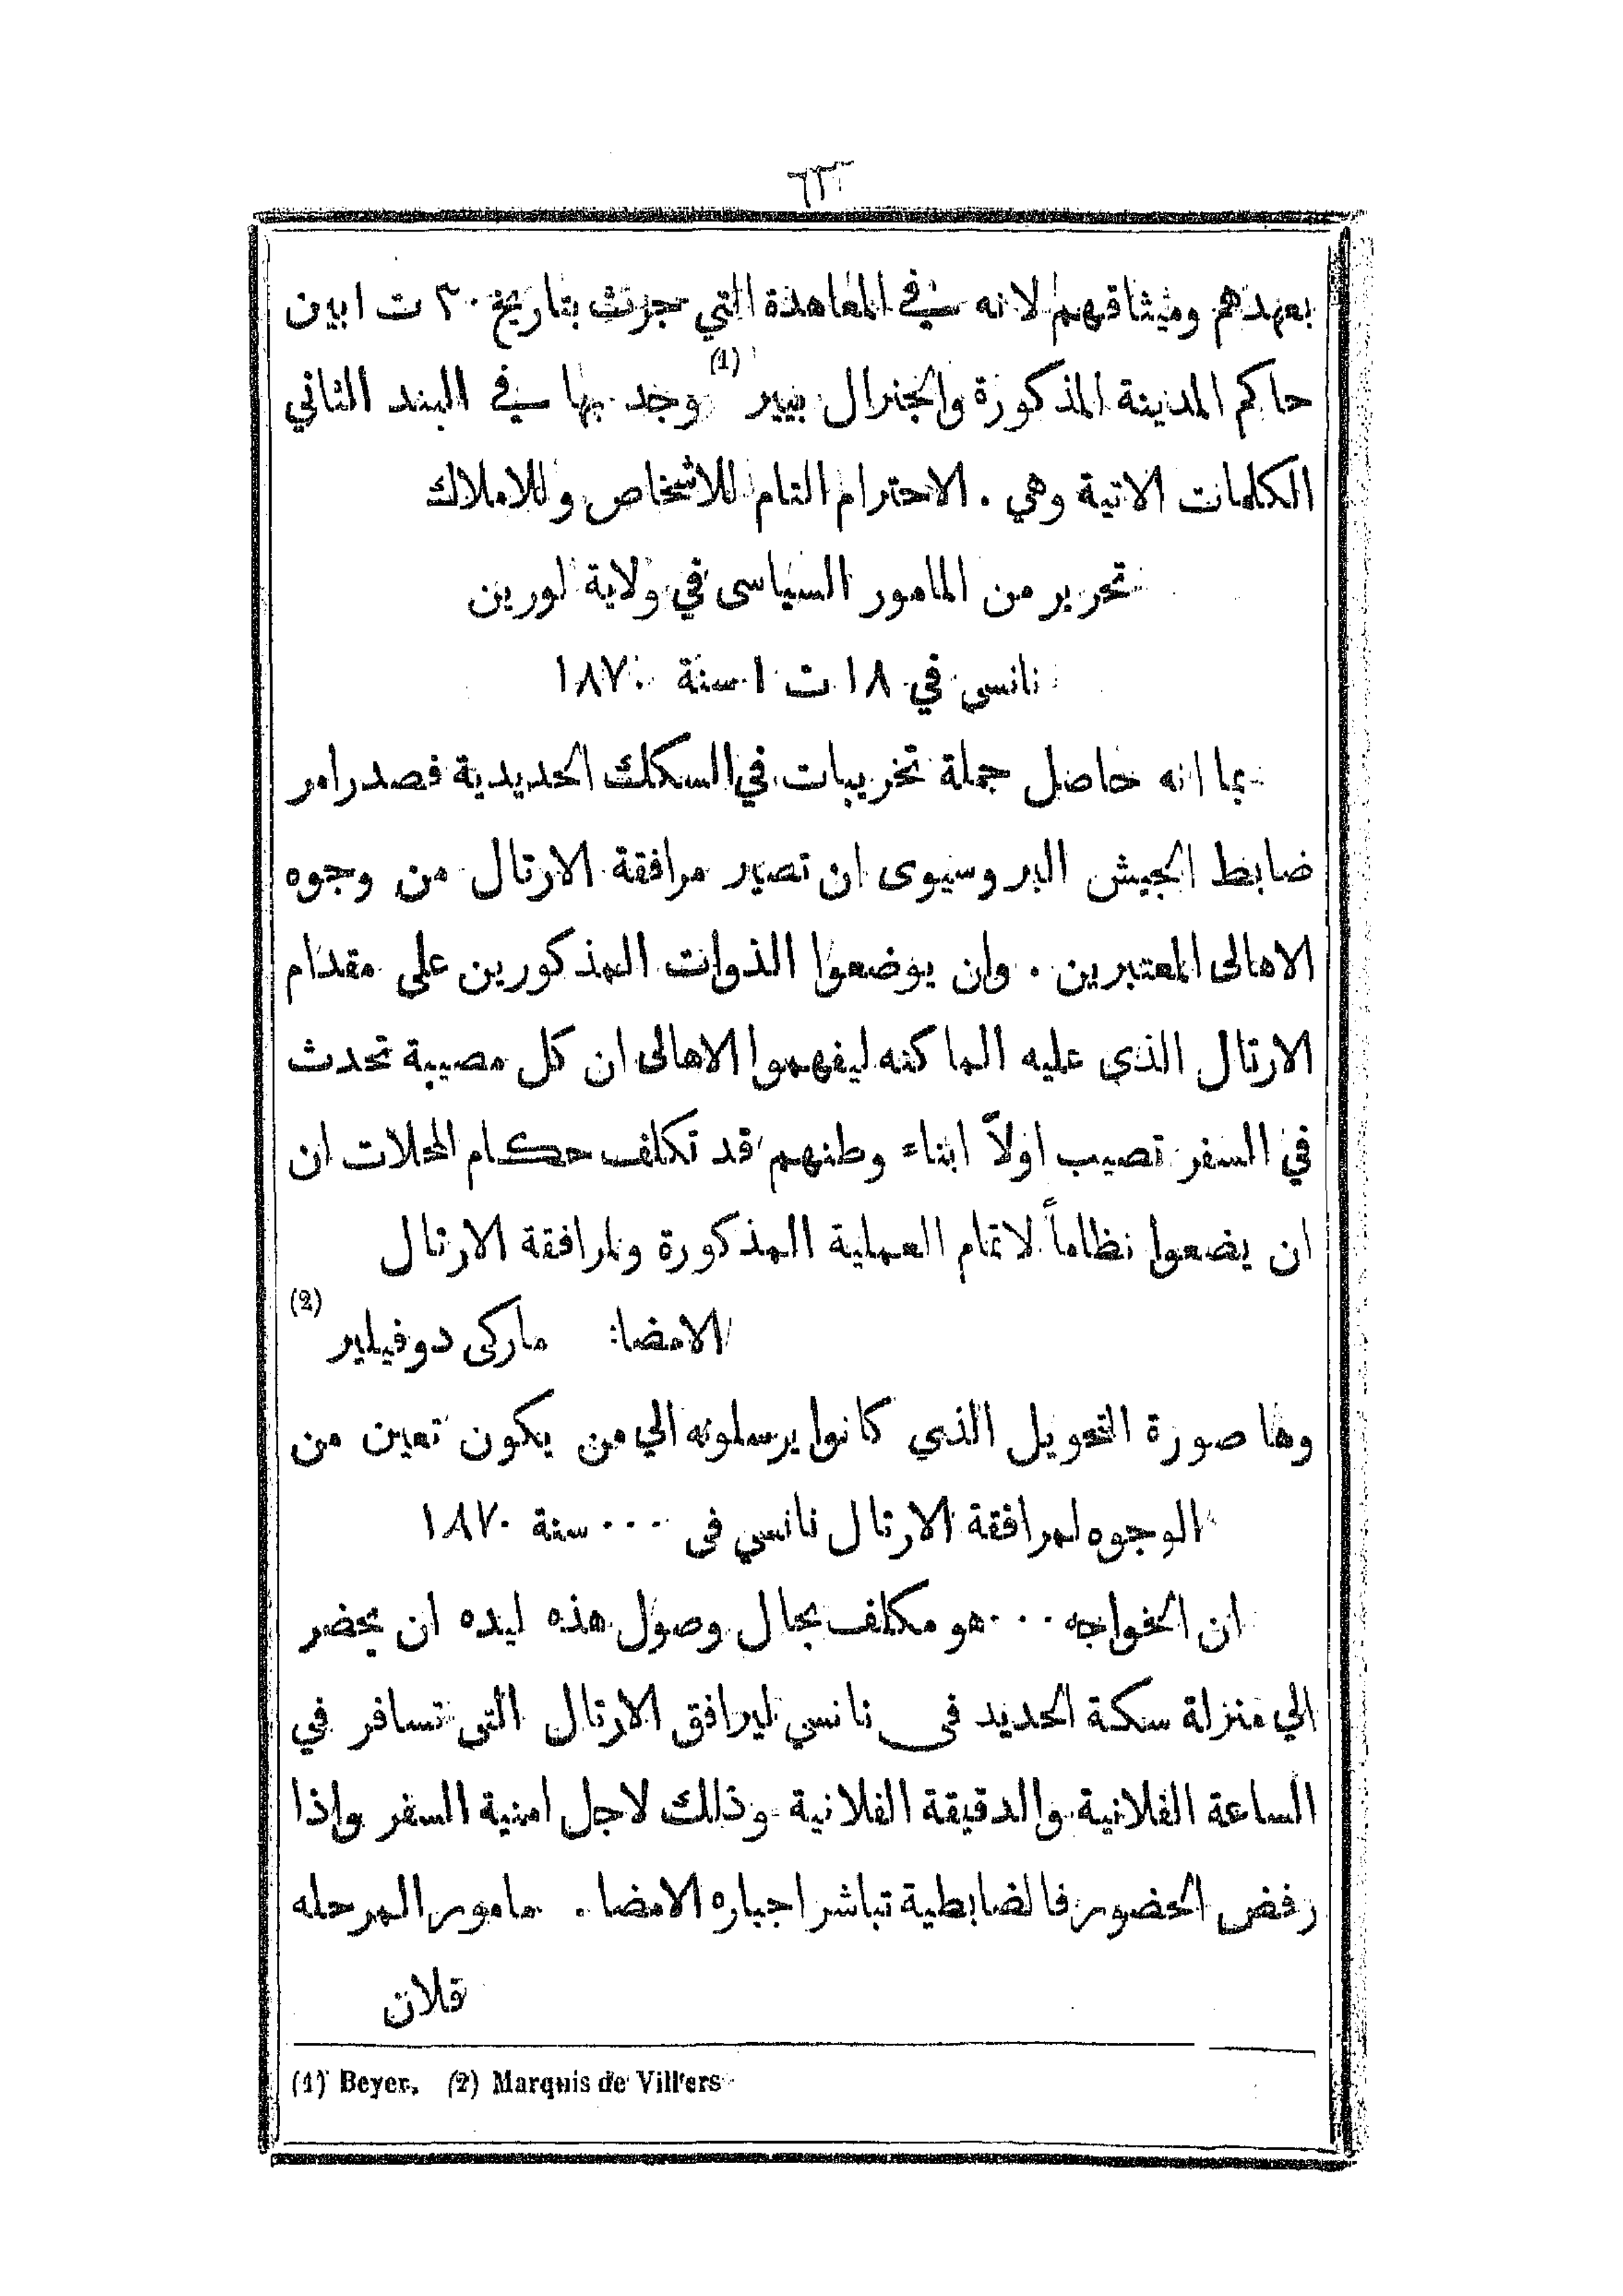 بعهدهم وميثاقهم لانه في المعاهدة التي جرت بتاريخ ٣٠ ت ١ بين
حاكم المدينة المذكورة والجنرال بيير (1) وجد بها في البند الثاني
الكلمات الاتية وهي . الاحترام التام للاشخاص وللاملاك
تحرير من المامور السياسى في ولاية لورين
نانسى في ١٨ ت ١ سنة ١٨٧٠
بما انه حاصل جملة تخريبات في السكك الحديدية فصدر امر
ضابط الجيش البروسيوى ان تصير مرافقة الارتال من وجوه
الاهالى المعتبرين . وان يوضعوا الذوات المذكورين على مقدام
الارتال الذي عليه الماكنه ليفهموا الاهالى ان كل مصيبة تحدث
في السفر تصيب اولاً ابناء وطنهم قد تكلف حكام المحلات ان
ان يضعوا نظاماً لاتمام العملية المذكورة ولمرافقة الارتال
الامضا: ماركى دوفيلير (2)
وها صورة التحويل الذي كانوا يرسلونه الي من يكون تعين من
الوجوه لمرافقة الارتال نانسي فى ٠٠٠ سنة ١٨٧٠
ان الخواجه ٠٠٠ هو مكلف بحال وصول هذه ليده ان يحضر
الي منزلة سكة الحديد فى نانسي ليرافق الارتال التى تسافر في
الساعة الفلانية والدقيقة الفلانية وذلك لاجل امنية السفر واذا
رفض الحضور فالضابطية تباشر اجباره الامضا . مامور المرحله
فلان
(1) Beyer, (2) Marquis de Villers